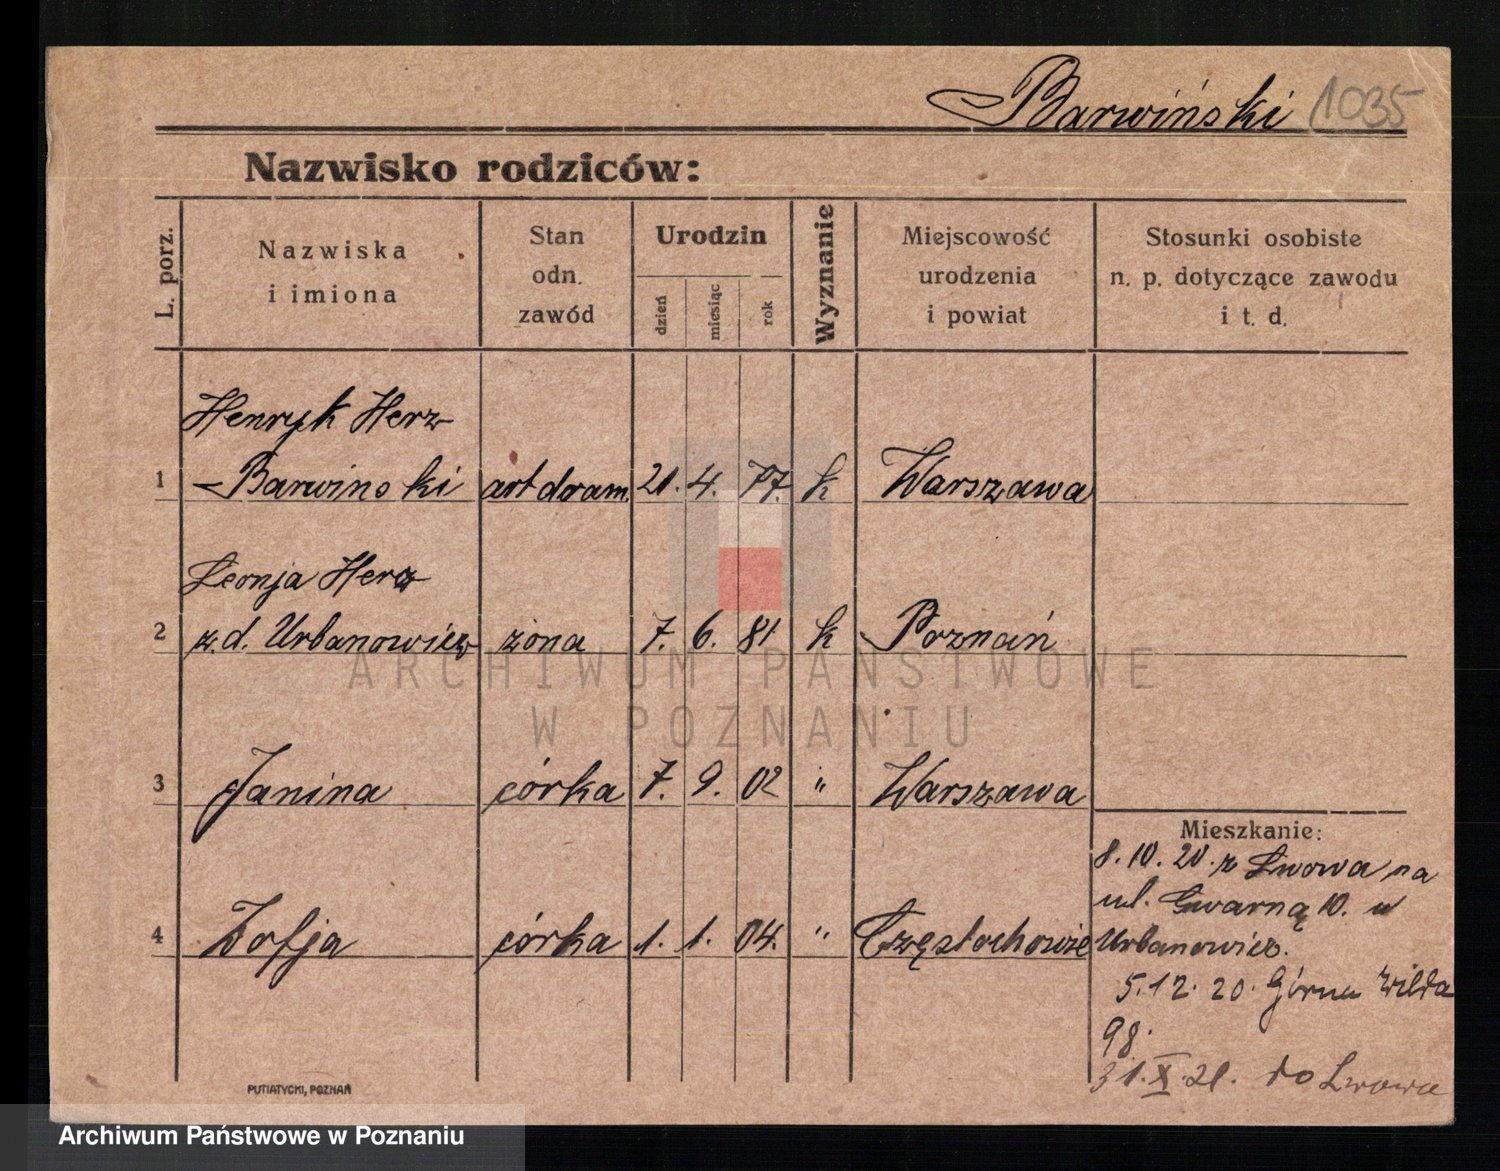 Barwiński 1035
Nazwisko rodziców:
L. porz.
Nazwiska
i imiona
Stan
odn.
zawód
Urodzin
dzień
miesiąc
rok
Wyznanie
Miejscowość
urodzenia
i powiat
Stosunki osobiste
n. p. dotyczące zawodu
i t. d.
Henryk Herz
1 Barwinski art dram. 21. 4. 77. k Warszawa
Leonja Herz
2 z.d. Urbanowicz żona 7. 6. 81 k Poznań
3 Janina córka 7. 9. 02 " Warszawa
Mieszkanie:
8. 10. 20. z Lwowa na
ul. Gwarną 10. u
4 Zofja córka 1. 1. 04. " Częstochowie
Urbanowicz.
5. 12. 20. Górna Wilda
98.
31. X. 21. do Lwowa
PUTIATYCKI, POZNAŃ
ARCHIWUM PAŃSTWOWE
W POZNANIU
Archiwum Państwowe w Poznaniu